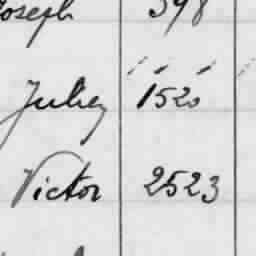 Joseph 398
Juley 1520
Victor 2523